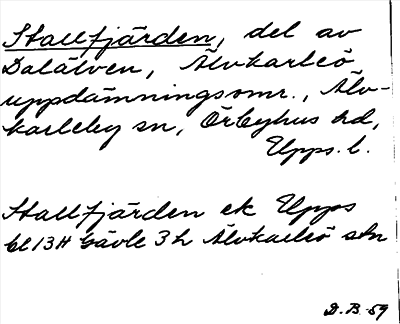 Stallfjärden, del av
Dalälven, Älvkarleö
uppdämningsomr., Älv-
karleby sn, Örbyhus hd,
Upps. l.
Stallfjärden ek Upps
bl 13H Gävle 3h Älvkarleö stn
D.B. 59